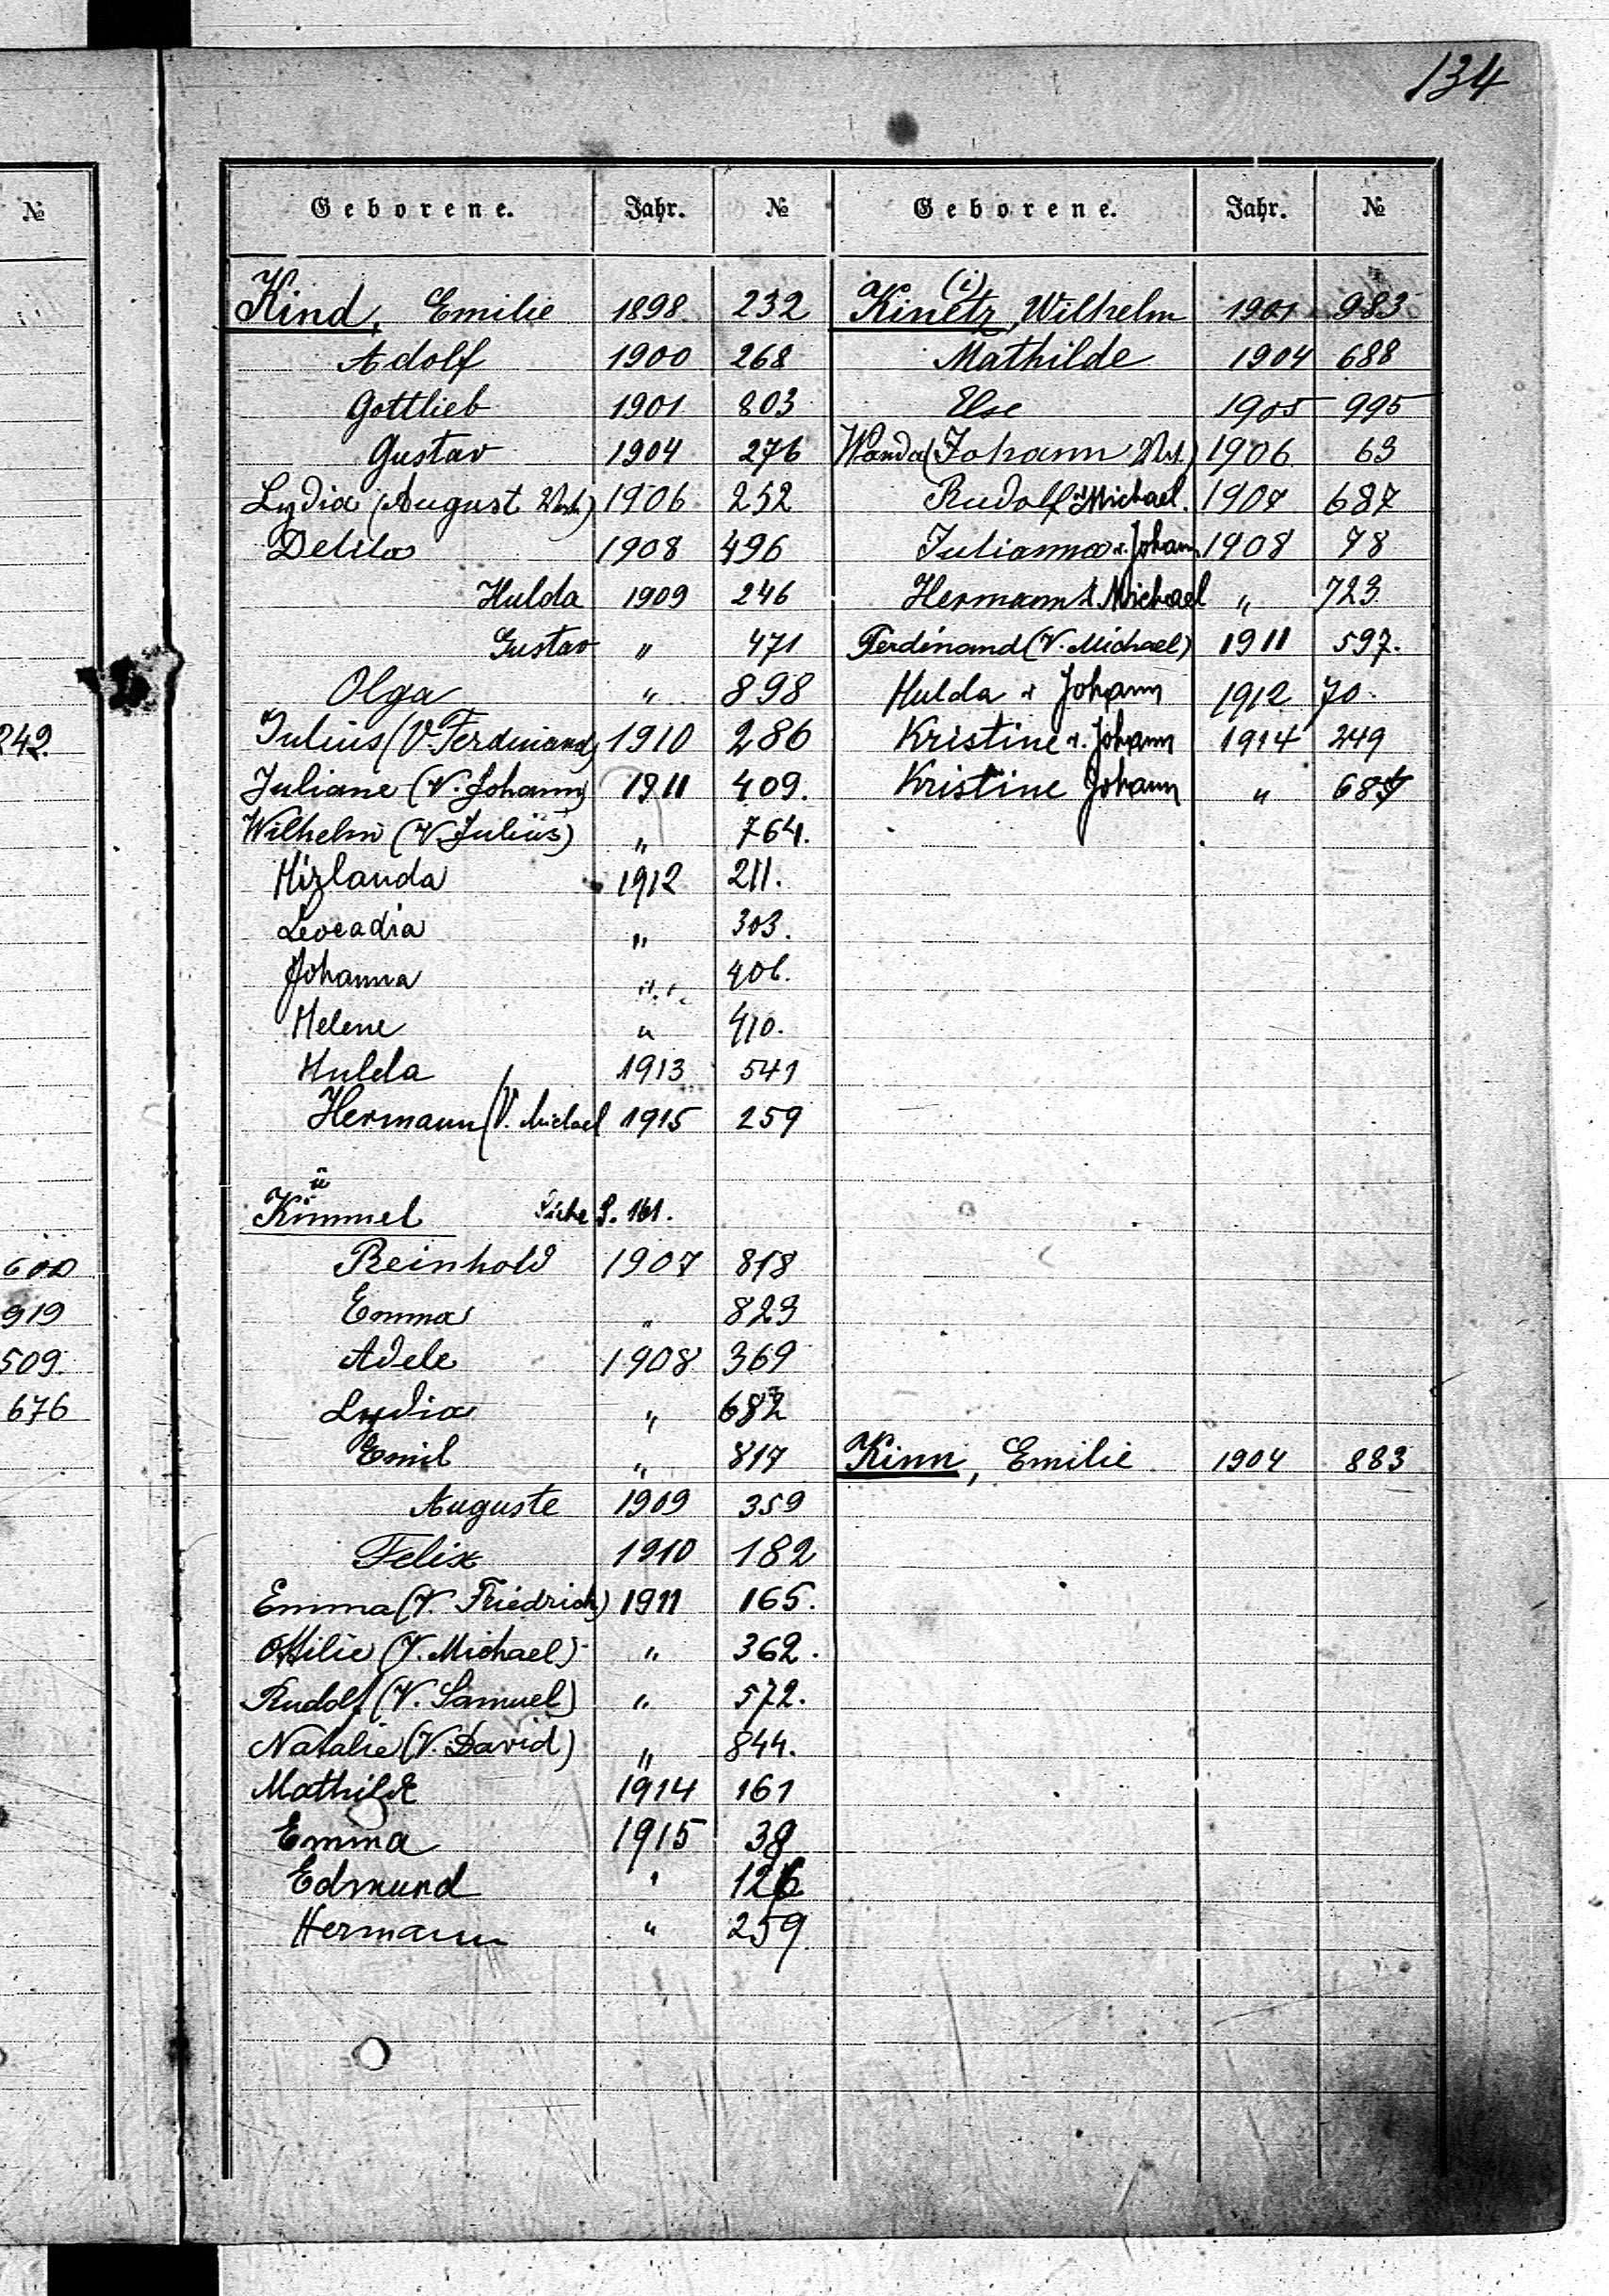 134
№
Geborene. Jahr. №
Kind, Emilie 1898. 232
Adolf 1900 268
Gottlieb 1901 803
Gustav 1904 276
Lydia (August 1906 252
Delila 1908 496
Hulda 1909 246
Gustav " 471
Olga " 898
Julius (V. Ferdinand) 1910 286
Juliane (V. Johann) 1911 409.
Wilhelm (V. Julius) " 764.
Mirlanda 1912 211.
Leocadia " 303.
Johanna " 406.
Helene " 410.
Hulda 1913 541
Hermann (V. Michael 1915 259
ü
Kimmel Siehe S. 161.
Reinhold 1907 818
Emma " 823
Adele 1908 369
Lydia " 682
Emil " 817
Auguste 1909 359
Felix 1910 182
Emma (V. Friedrich) 1911 165.
Ottilie (V. Michael) " 362.
Rudolf (V. Samuel) " 572.
Natalie (V. David) " 844.
Mathilde 1914 161
Emma 1915 38
Edmund " 126
Hermann " 259
Geborene. Jahr. №
a (i)
Kinetz, Wilhelm 1901 983
Mathilde 1904 688
Else 1905 995
Wanda (Johann 1906 63
Rudolf v Michael. 1907 687
Julianna v. Johann 1908 78
Hermann v. Michael " 723
Ferdinand (V. Michael) 1911 597.
Hulda v Johann 1912 70.
Kristine v. Johann 1914 249
Kristine Johann "
Kinn, Emilie 1904 883
242.
600
919
509.
676